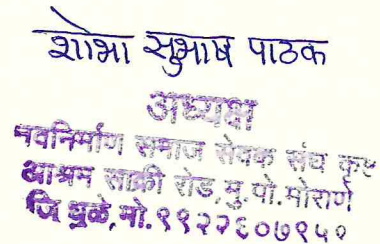 शोभा सुभाष पाठक
अध्यक्ष
नवनिर्माण समाज सेवक संघ कुष्ट
आश्रम साक्री रोड,मु.पो.मोराणे
जि धुळे,मो.९९२२६०७९५१